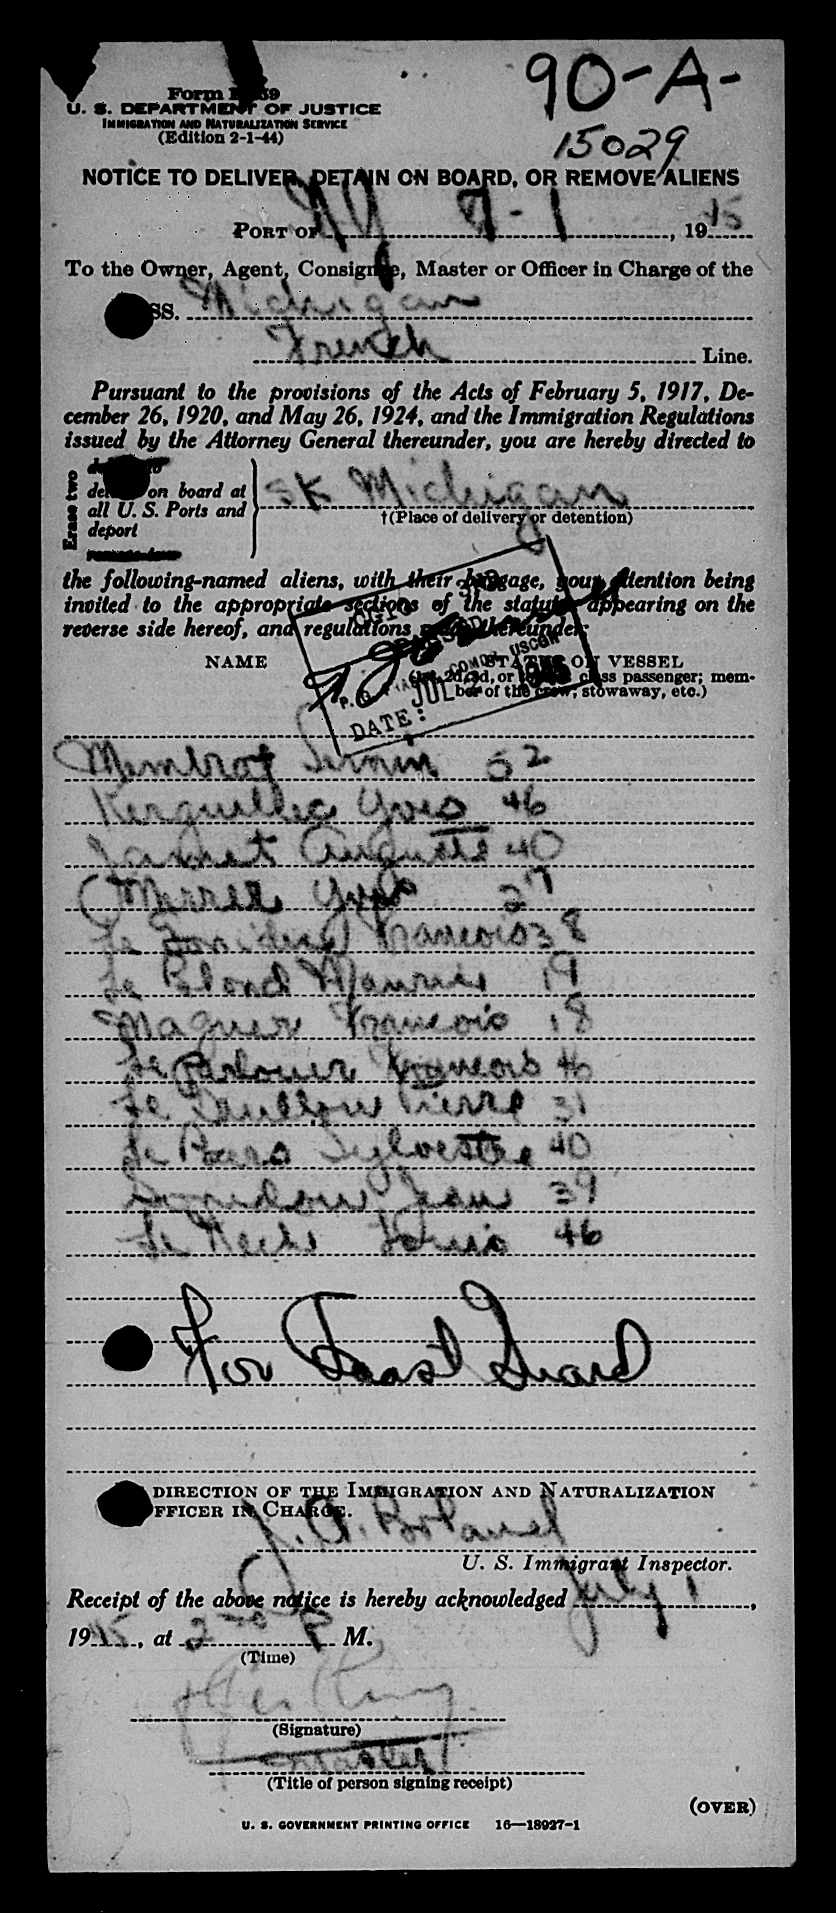 90-A-
15029
Form I-259
U. S. DEPARTMENT OF JUSTICE
IMMIGRATION AND NATURALIZATION SERVICE
(Edition 2-1-44)
NOTICE TO DELIVER, DETAIN ON BOARD, OR REMOVE ALIENS
PORT OF NY 7-1, 1945
To the Owner, Agent, Consignee, Master or Officer in Charge of the
SS. Michigan
French Line.
Pursuant to the provisions of the Acts of February 5, 1917, De-
cember 26, 1920, and May 26, 1924, and the Immigration Regulations
issued by the Attorney General thereunder, you are hereby directed to
Erase two
on board at
all U. S. Ports and
deport
SS Michigan
†(Place of delivery or detention)
the following-named aliens, with their baggage, your attention being
invited to the appropriate sections of the statutes appearing on the
reverse side hereof, and regulations made thereunder:
NAME
STATUS ON VESSEL
(1st, 2d, 3d, or class passenger; mem-
ber of the crew, stowaway, etc.)
USCGR
JUL 1945
DATE:
52
Yves 46
Auguste 40
27
Francois 38
Le Blond Maurice 19
Maguer Francois 18
Francois 46
Le Pierre 31
Le Sylvestre 40
Jean 39
Le Louis 46
For Coast Guard
DIRECTION OF THE IMMIGRATION AND NATURALIZATION
OFFICER IN CHARGE.
J. A. Boland
U. S. Immigrant Inspector.
Receipt of the above notice is hereby acknowledged July 1,
1945, at 2 00 P M.
(Time)
(Signature)
Master
(Title of person signing receipt)
(OVER)
U. S. GOVERNMENT PRINTING OFFICE 16—18927-1